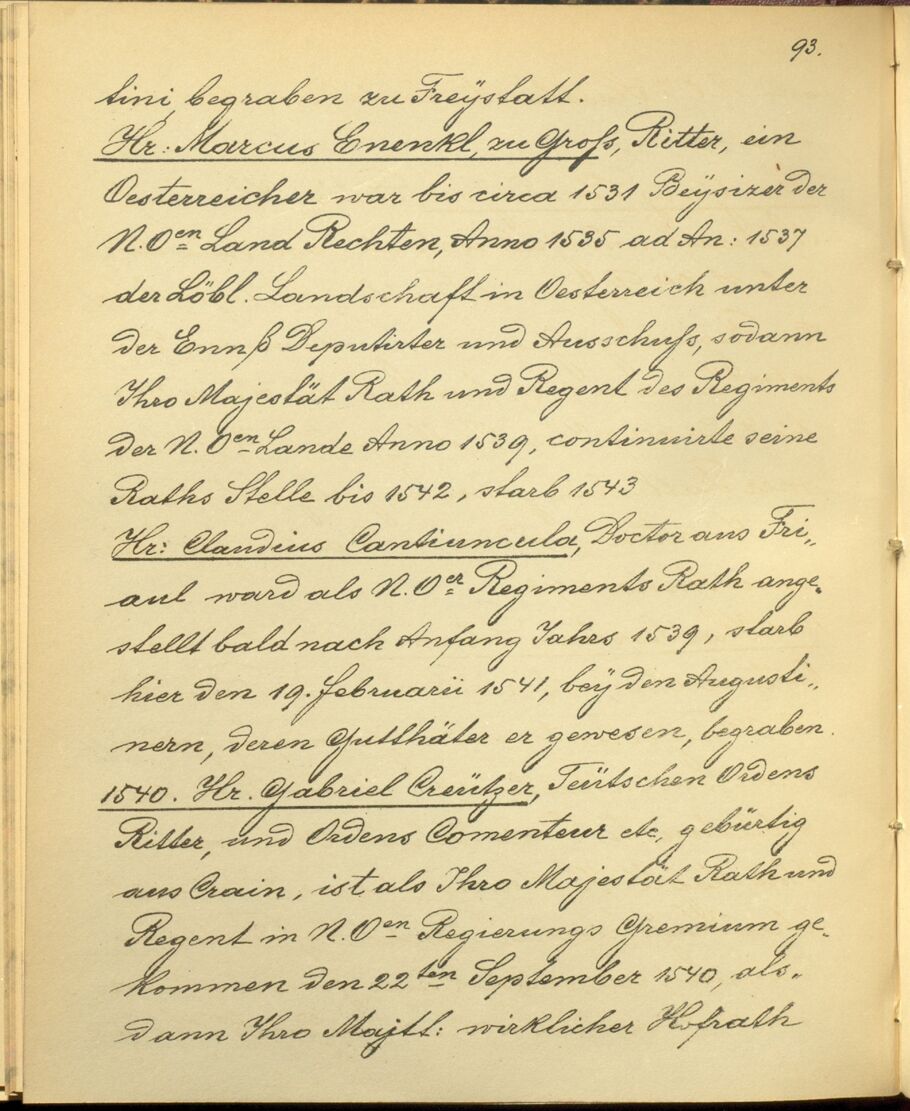 93.
tini, begraben zu Freÿstatt.
Hr: Marcus Enenkl, zu Groß, Ritter, ein
Oesterreicher war bis circa 1531 Beÿsizer der
N. Oen Land Rechten, Anno 1535 ad An: 1537
der Löbl. Landschaft in Oesterreich unter
der Ennß Deputirter und Ausschuß, sodann
Ihro Majestät Rath und Regent des Regiments
der N. Oen Lande Anno 1539, continuirte seine
Raths Stelle bis 1542, starb 1543
Hr: Claudius Cantiuncula, Doctor aus Fri„
aul ward als N. Oer Regiments Rath ange„
stellt bald nach Anfang Jahrs 1539, starb
hier den 19. Februarii 1541, beÿ den Augusti„
nern, deren Gutthäter er gewesen, begraben.
1540. Hr. Gabriel Creützer, Teütschen Ordens
Ritter, und Ordens Comenteur etc, gebürtig
aus Crain, ist als Ihro Majestät Rath und
Regent in N. Oen Regierungs Gremium ge„
kommen den 22ten September 1540, als„
dann Ihro Majtt: wirklicher Hofrath